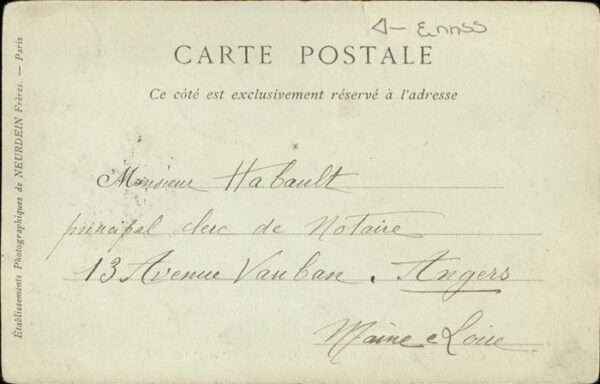 CARTE POSTALE
Ce côté est exclusivement réservé à l'adresse
Monsieur Habault
principal clerc de Notaire
13 Avenue Vauban. Angers
Maine e Loire
Établissements Photographiques de NEURDEIN Frères. — Paris